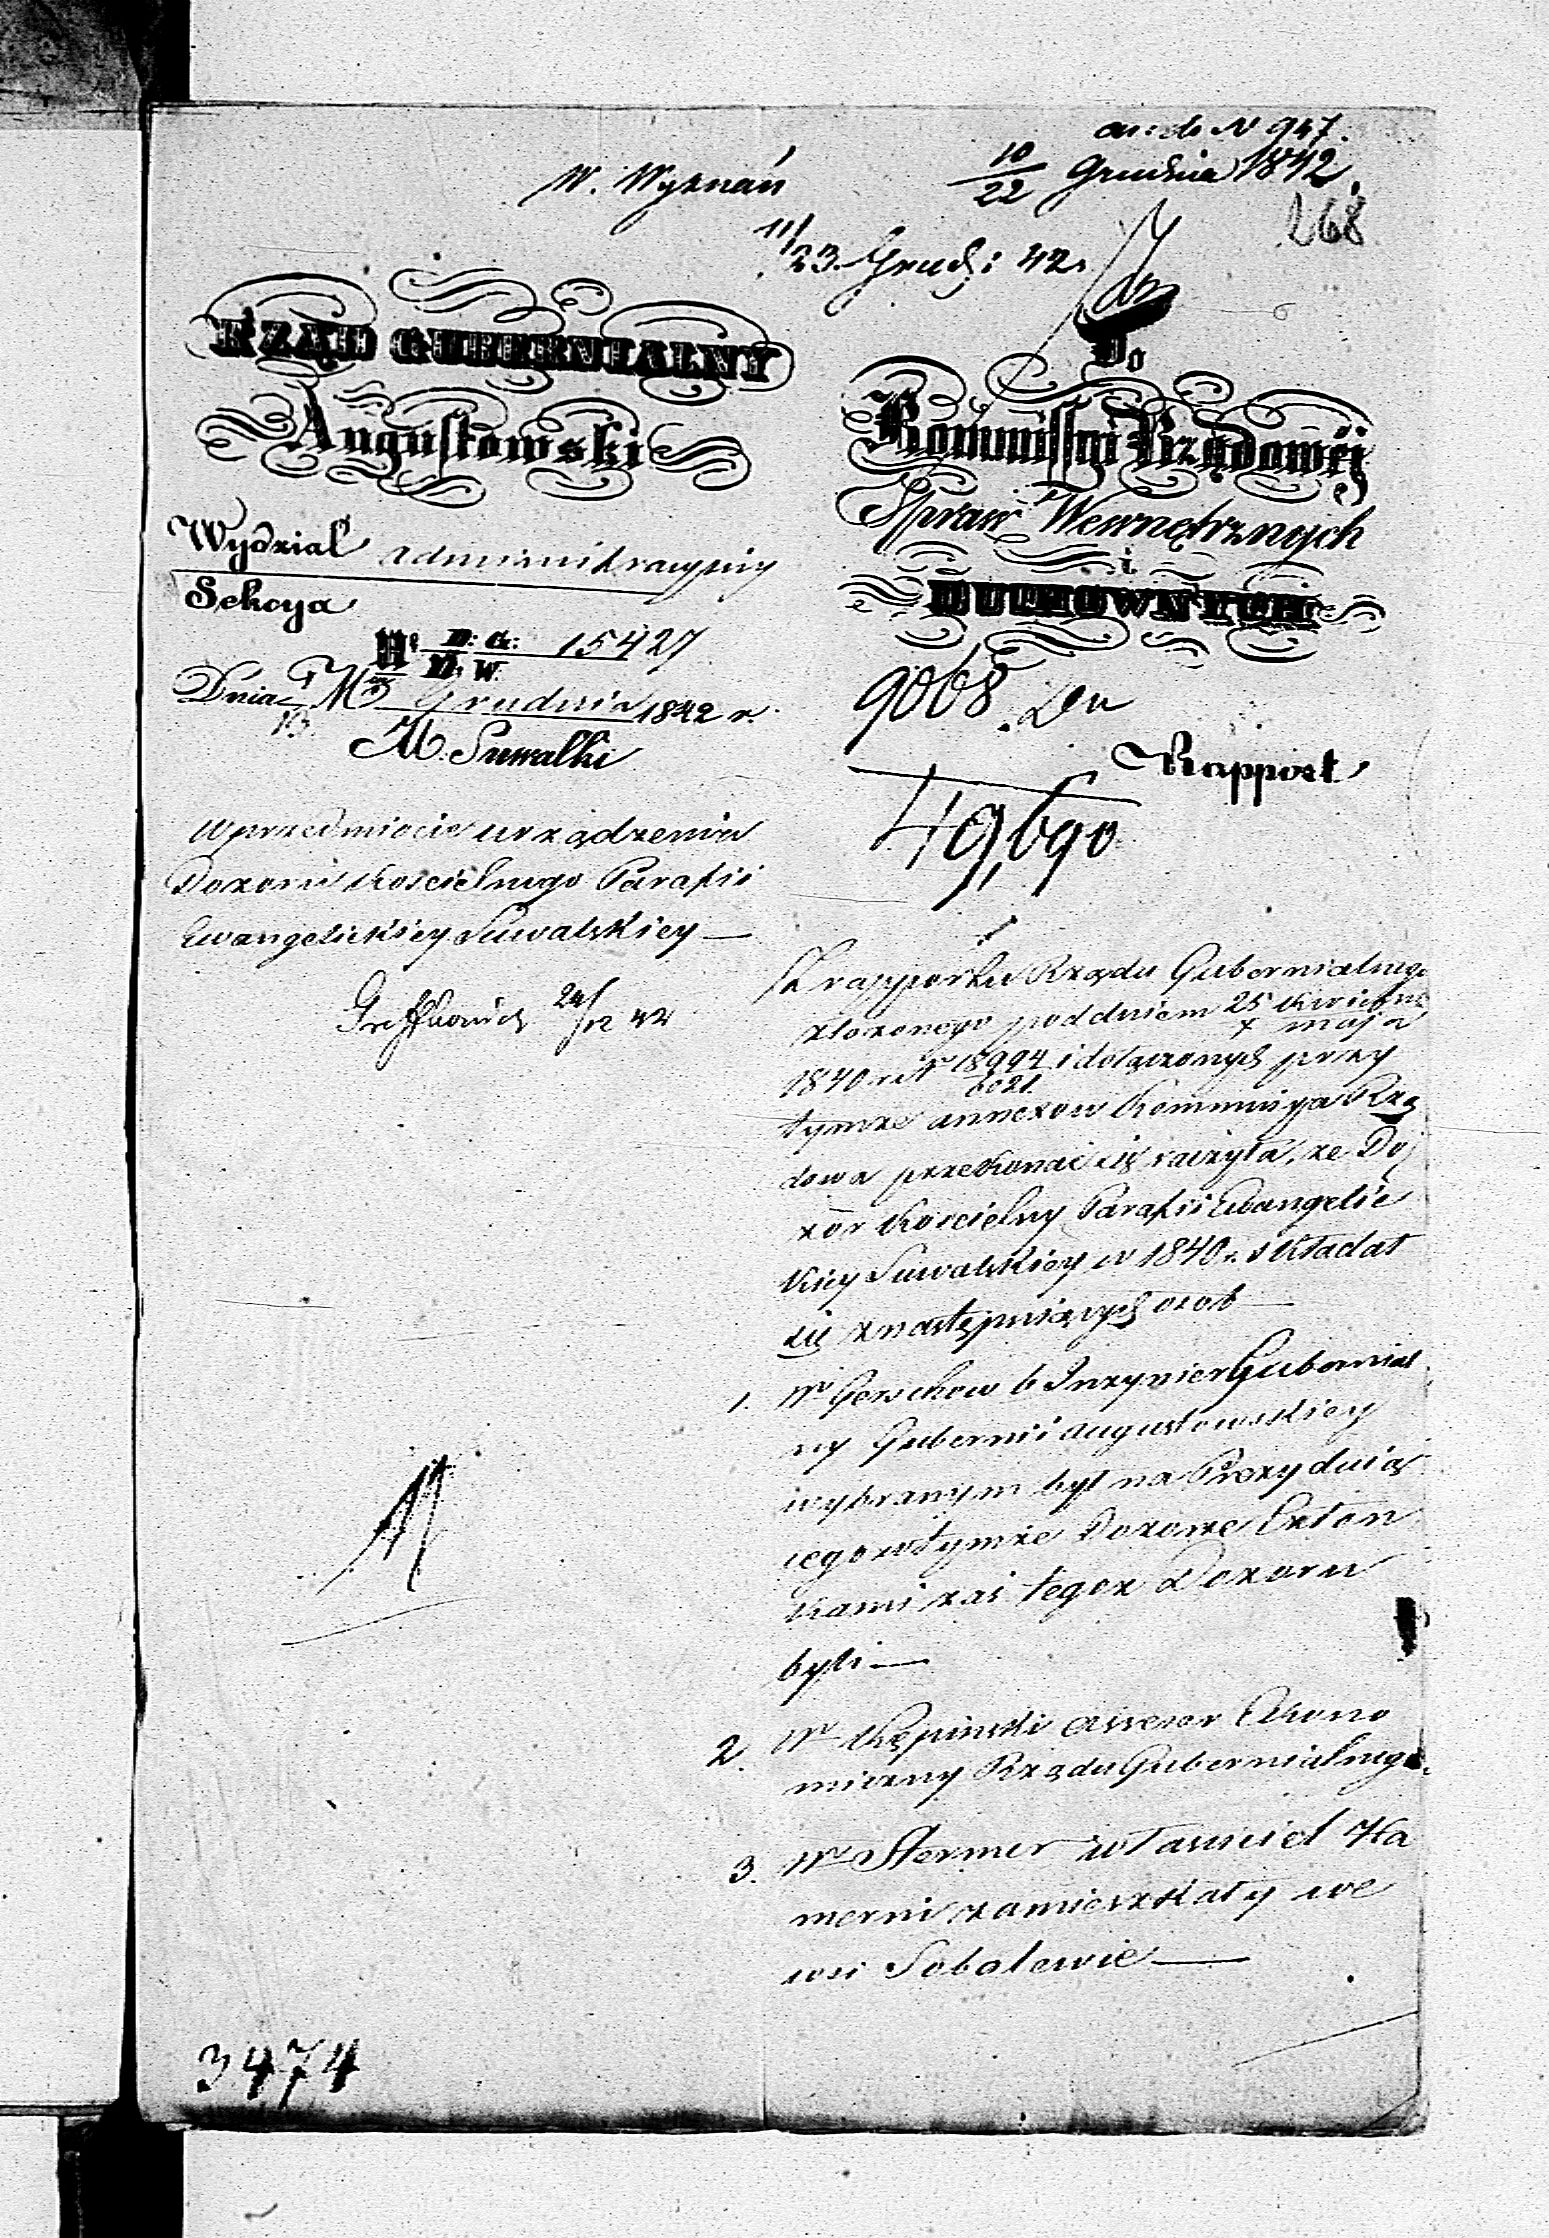 N 947.
W. Wyznań
10/22 Grudnia 1842.
268
11/23 Grud: 42.
RZĄD GUBERNIALNY
Augustowski
Wydział administracyiny
Sekcya
Nº D: G: 15427
D: W.
Dnia 1/13 Mca Grudnia 1842 r.
M. Suwalki
W przedmiocie urządzenia
Dozoru Koscielnego Parafii
Ewangelickiey Suwalskiey —
24/12 42
Do
Kommissyi Rządowéj
Spraw Wewnętrznych
i
DUCHOWNYCH
9068
Rapport
49,690
Z rapportu Rządu Gubernialnego
złożonego pod dniem 25 Kwietnia
7 maja
1840 r. Nr 18994 i dołączonych przy
6021.
tymże annexow Kommissya Rzą
dowa przekonać się raczyła, że Do
zór Kościelny Parafii Ewangelic
kiey Suwalskiey w 1840 r. składał
się z następuiących osob —
1. Wy Gerschow b Inżynier Gubernial
ny Gubernii Augustowskiey
wybranym był na Prezyduią
cego w tymże Dozorze Człon
kami zas tegoż Dozoru
byli —
2. Wy Kępinski Assesor Ekono
miczny Rządu Gubernialnego.
3. Wy Stermer własciciel Ha
merni zamieszkały we
wsi Sobolewie —
3474